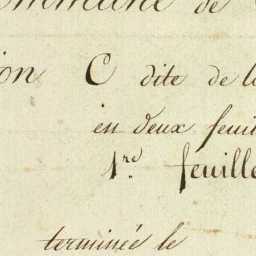 ommune de
ion C dite de l
en deux feui
1re feuille
terminée le